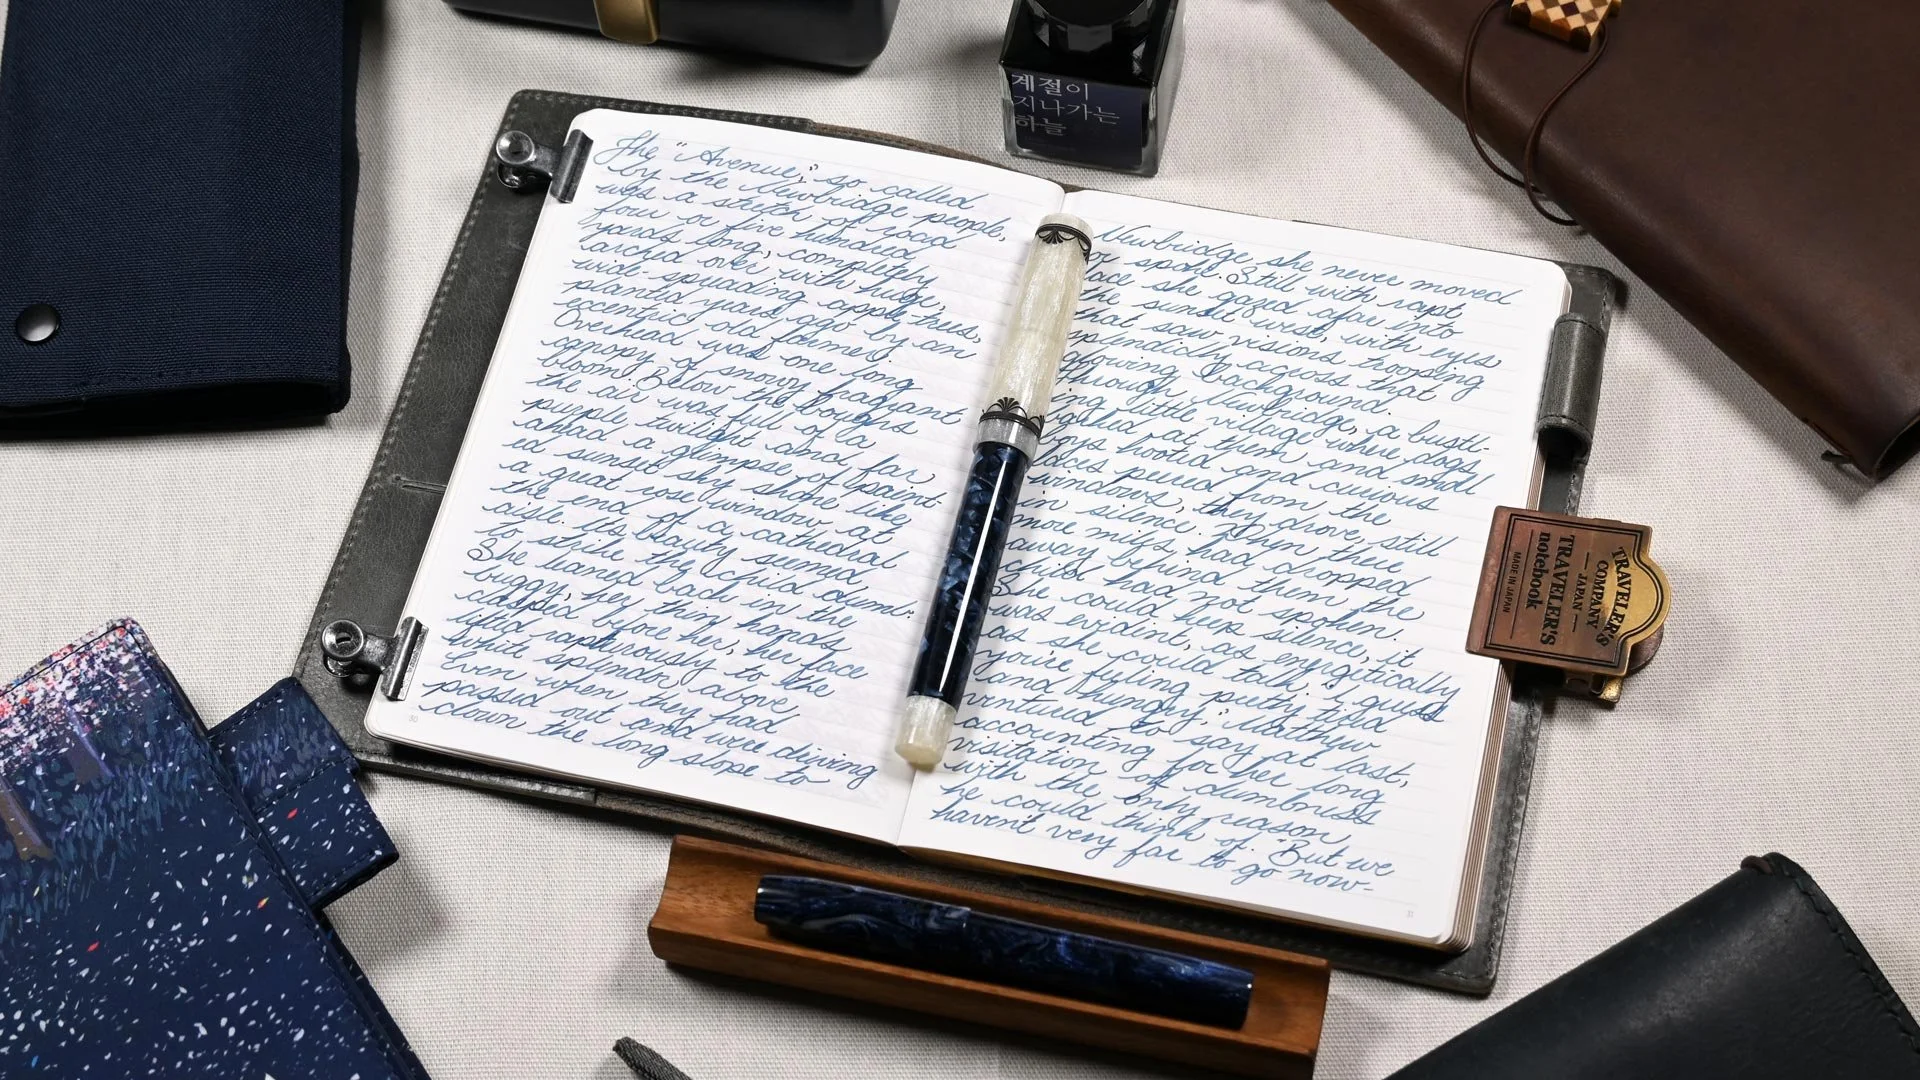 계절이
지나가는
하늘
The "Avenue," so called
by the Newbridge people,
was a stretch of road
four or five hundred
yards long, completely
arched over with huge,
wide-spreading apple-trees,
planted years ago by an
eccentric old farmer.
Overhead was one long
canopy of snowy fragrant
bloom. Below the boughs
the air was full of a
purple twilight and far
ahead a glimpse of paint-
ed sunset sky shone like
a great rose window at
the end of a cathedral
aisle. Its beauty seemed
to strike the child dumb.
She leaned back in the
buggy, her thin hands
clasped before her, her face
lifted rapturously to the
white splendor above.
Even when they had
passed out and were driving
down the long slope to
30
Newbridge she never moved
or spoke. Still with rapt
face she gazed afar into
the sunset west, with eyes
that saw visions trooping
splendidly across that
glowing background.
Through Newbridge, a bustl-
ing little village where dogs
barked at them and small
boys hooted and curious
faces peered from the
windows, they drove, still
in silence. When three
more miles had dropped
away behind them the
child had not spoken.
She could keep silence, it
was evident, as energetically
as she could talk. "I guess
you're feeling pretty tired
and hungry," Matthew
ventured to say at last,
accounting for her long
visitation of dumbness
with the only reason
he could think of. "But we
haven't very far to go now-
31
TRAVELER'S
COMPANY
— JAPAN —
TRAVELER'S
notebook
MADE IN JAPAN